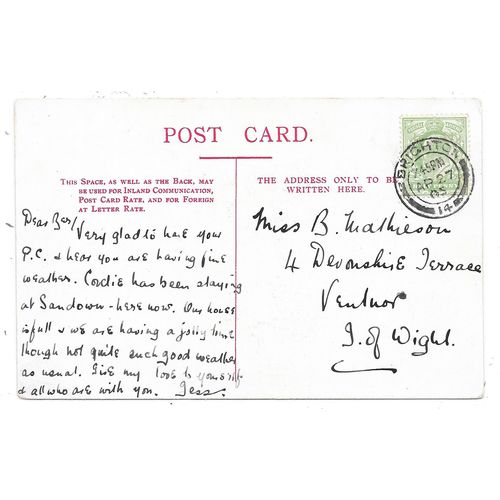 POST CARD.
THIS SPACE, AS WELL AS THE BACK, MAY
BE USED FOR INLAND COMMUNICATION,
POST CARD RATE, AND FOR FOREIGN
AT LETTER RATE.
THE ADDRESS ONLY TO BE
WRITTEN HERE.
BRIGHTON
7.45PM
AP 27
05
14
Dear Bes/
Very glad to have your
P.C. & hear you are having fine
weather. Cordie has been staying
at Sandown - here now. Our house
is full & we are having a jolly time
though not quite such good weather
as usual. Give my love to yourself
& all who are with you. Jess.
Miss B. Mathieson
4 Devonshire Terrace
Ventnor
I. of Wight.